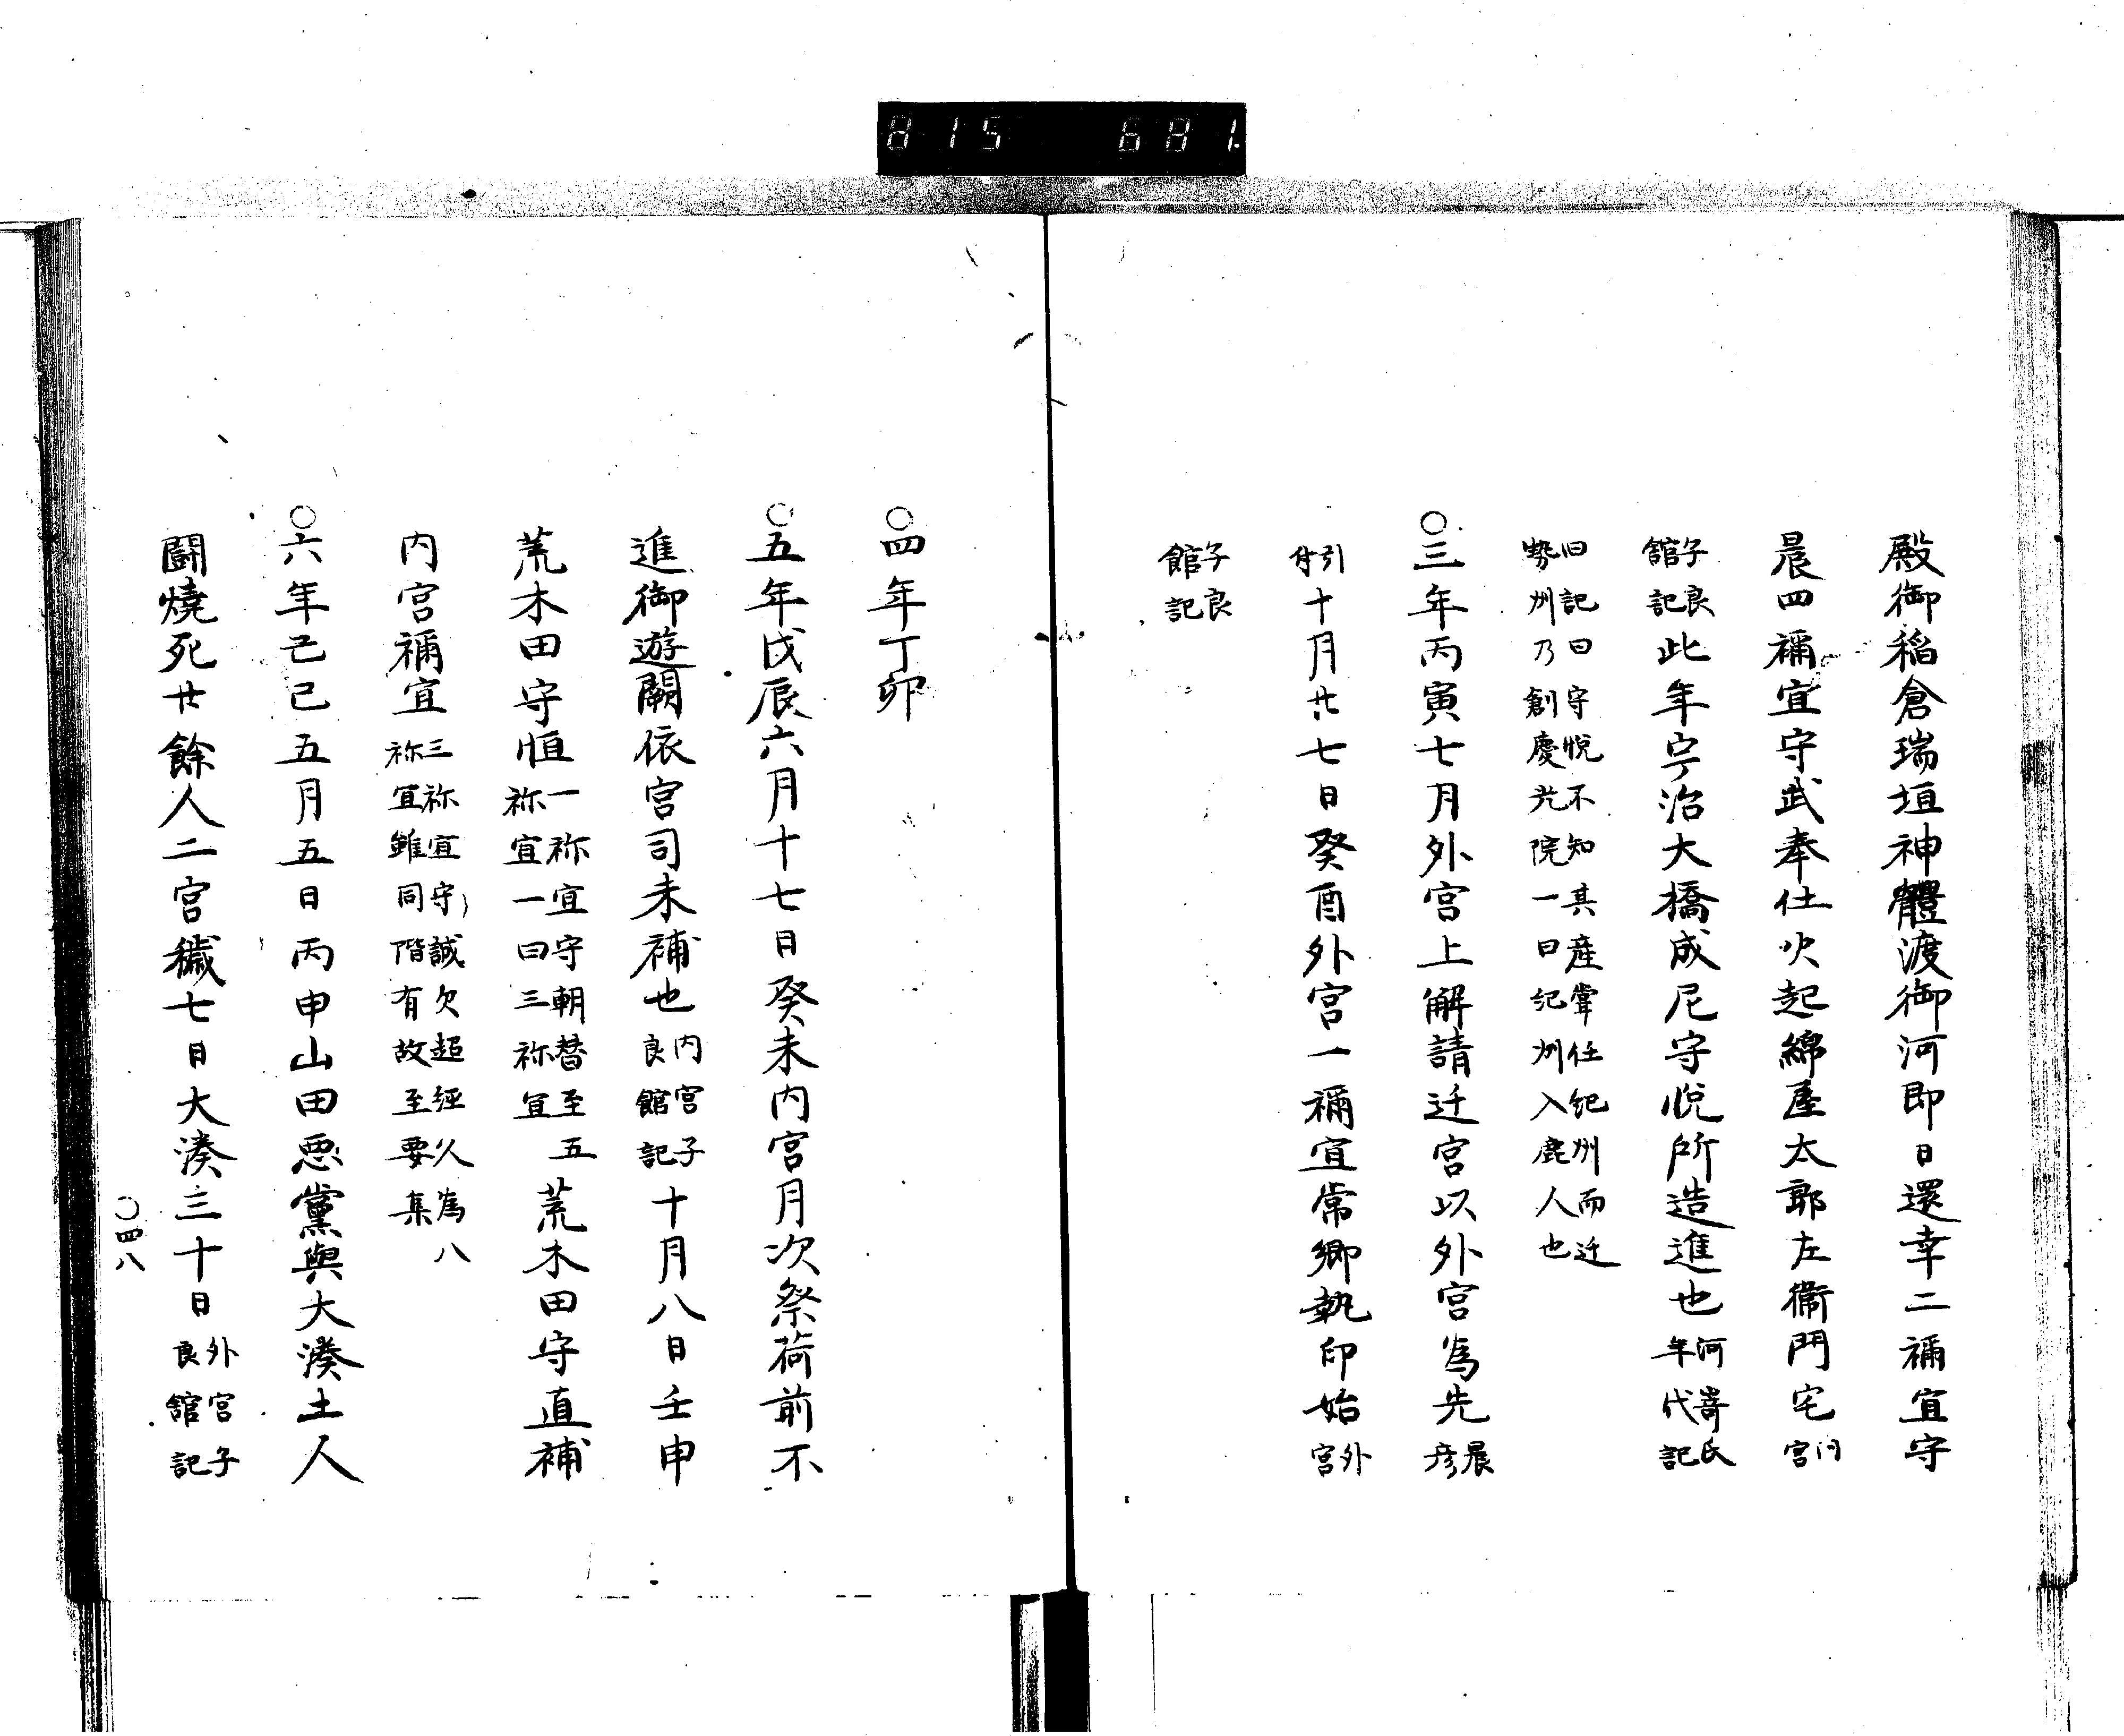 815 681.
殿御稲倉瑞垣神體渡御河即日還幸二禰宜守
晨四禰宜守武奉仕火起綿屋太郎左衞門宅内宮
子良館記此年宇治大橋成尼守悦所造進也河嵜氏年代記
旧記曰守悦不知其産甞住紀州而迁
勢州乃創慶光院一曰紀州入鹿人也
〇三年丙寅七月外宮上解請迁宮以外宮為先晨彦
引付十月廿七日癸酉外宮一禰宜常郷執印始外宮
子良館記
〇四年丁卯
〇五年戊辰六月十七日癸未内宮月次祭荷前不
進御遊闕依宮司未補也内宮子良館記十月八日壬申
荒木田守恒一祢宜守朝替至五祢宜一曰三祢宜荒木田守直補
内宮禰宜三祢宜守誠欠超経久為八祢宜雖同階有故至要集
〇六年己巳五月五日丙申山田悪黨與大湊土人
闘燒死廿餘人二宮穢七日大湊三十日外宮子良館記
〇四八